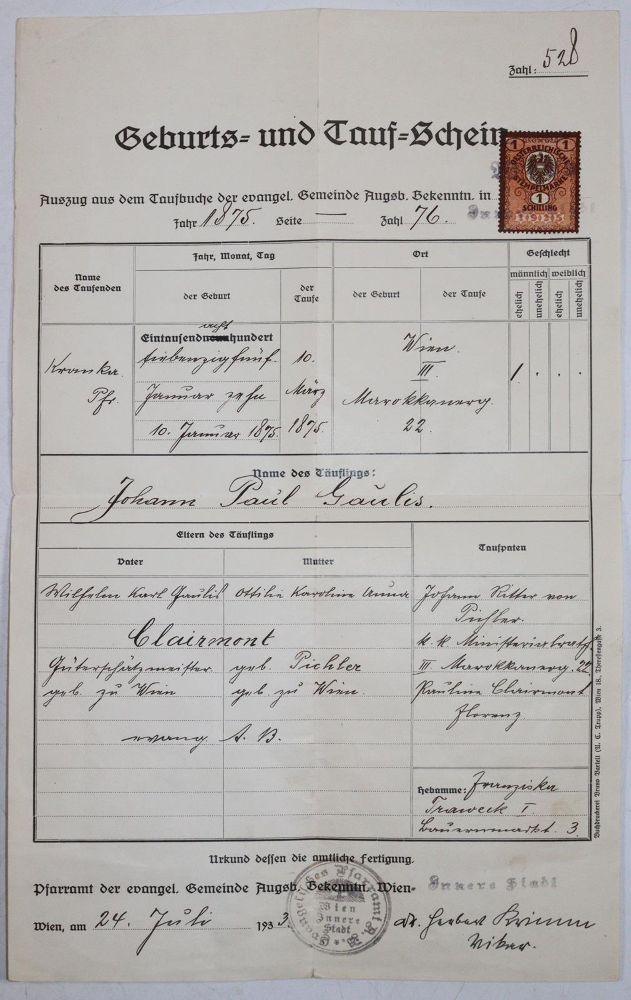 Zahl: 528
Geburts- und Tauf-Schein
1 ÖSTERREICHISCHE 1
STEMPELMARKE
1
SCHILLING
Auszug aus dem Taufbuche der evangel. Gemeinde Augsb. Bekenntn. in
Jahr 1875. Seite — Zahl 76.
Name des Taufenden
Jahr, Monat, Tag
Ort
Geschlecht
der Geburt
der Taufe
der Geburt
der Taufe
männlich
weiblich
ehelich
unehelich
ehelich
unehelich
Kranka
Pfr.
acht
Eintausend hundert
siebenzigfünf.
Januar zehn
10. Januar 1875.
10.
März
1875.
Wien
III.
Marokkanerg.
22.
1 . . .
Name des Täuflings:
Johann Paul Gaulis.
Eltern des Täuflings
Taufpaten
Vater
Mutter
Wilhelm Karl Gaulis
Ottilie Karoline Anna
Clairmont
Güterschatzmeister
geb. Pichler
geb. zu Wien
geb. zu Wien.
evang. A. B.
Johann Ritter von
Pichler.
k. k. Ministerialrath
III Marokkanerg. 22
Pauline Clairmont
Florenz
Hebamme: Franziska
Traweck I
Bauernmarkt. 3.
Buchdruckerei Bruno Bartelt (A. C. Trupp), Wien 18, Theresiengasse 3.
Urkund dessen die amtliche Fertigung.
Pfarramt der evangel. Gemeinde Augsb. Bekenntn. Wien- Innere Stadt
Evangelisches Pfarramt A. B.
Wien
Innere
Stadt
Wien, am 24. Juli 1933.
Dr. Herbert Krimm
Vikar.